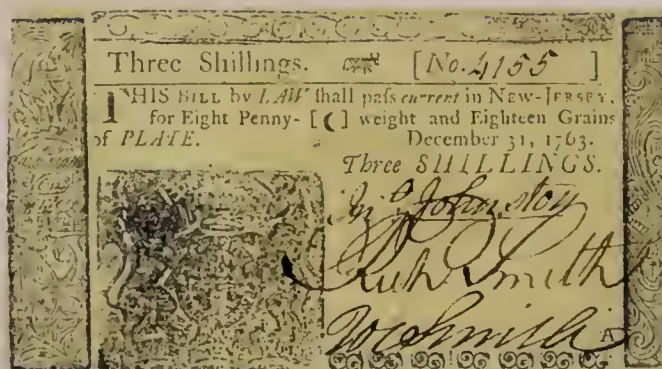 Three Shillings. [No. 4155 ]
THIS BILL by LAW ſhall paſs current in NEW-JERSEY,
for Eight Penny- [(] weight and Eighteen Grains
of PLATE. December 31, 1763.
Three SHILLINGS.
Jnº Johnston
Richd Smith
Jos Smith
A